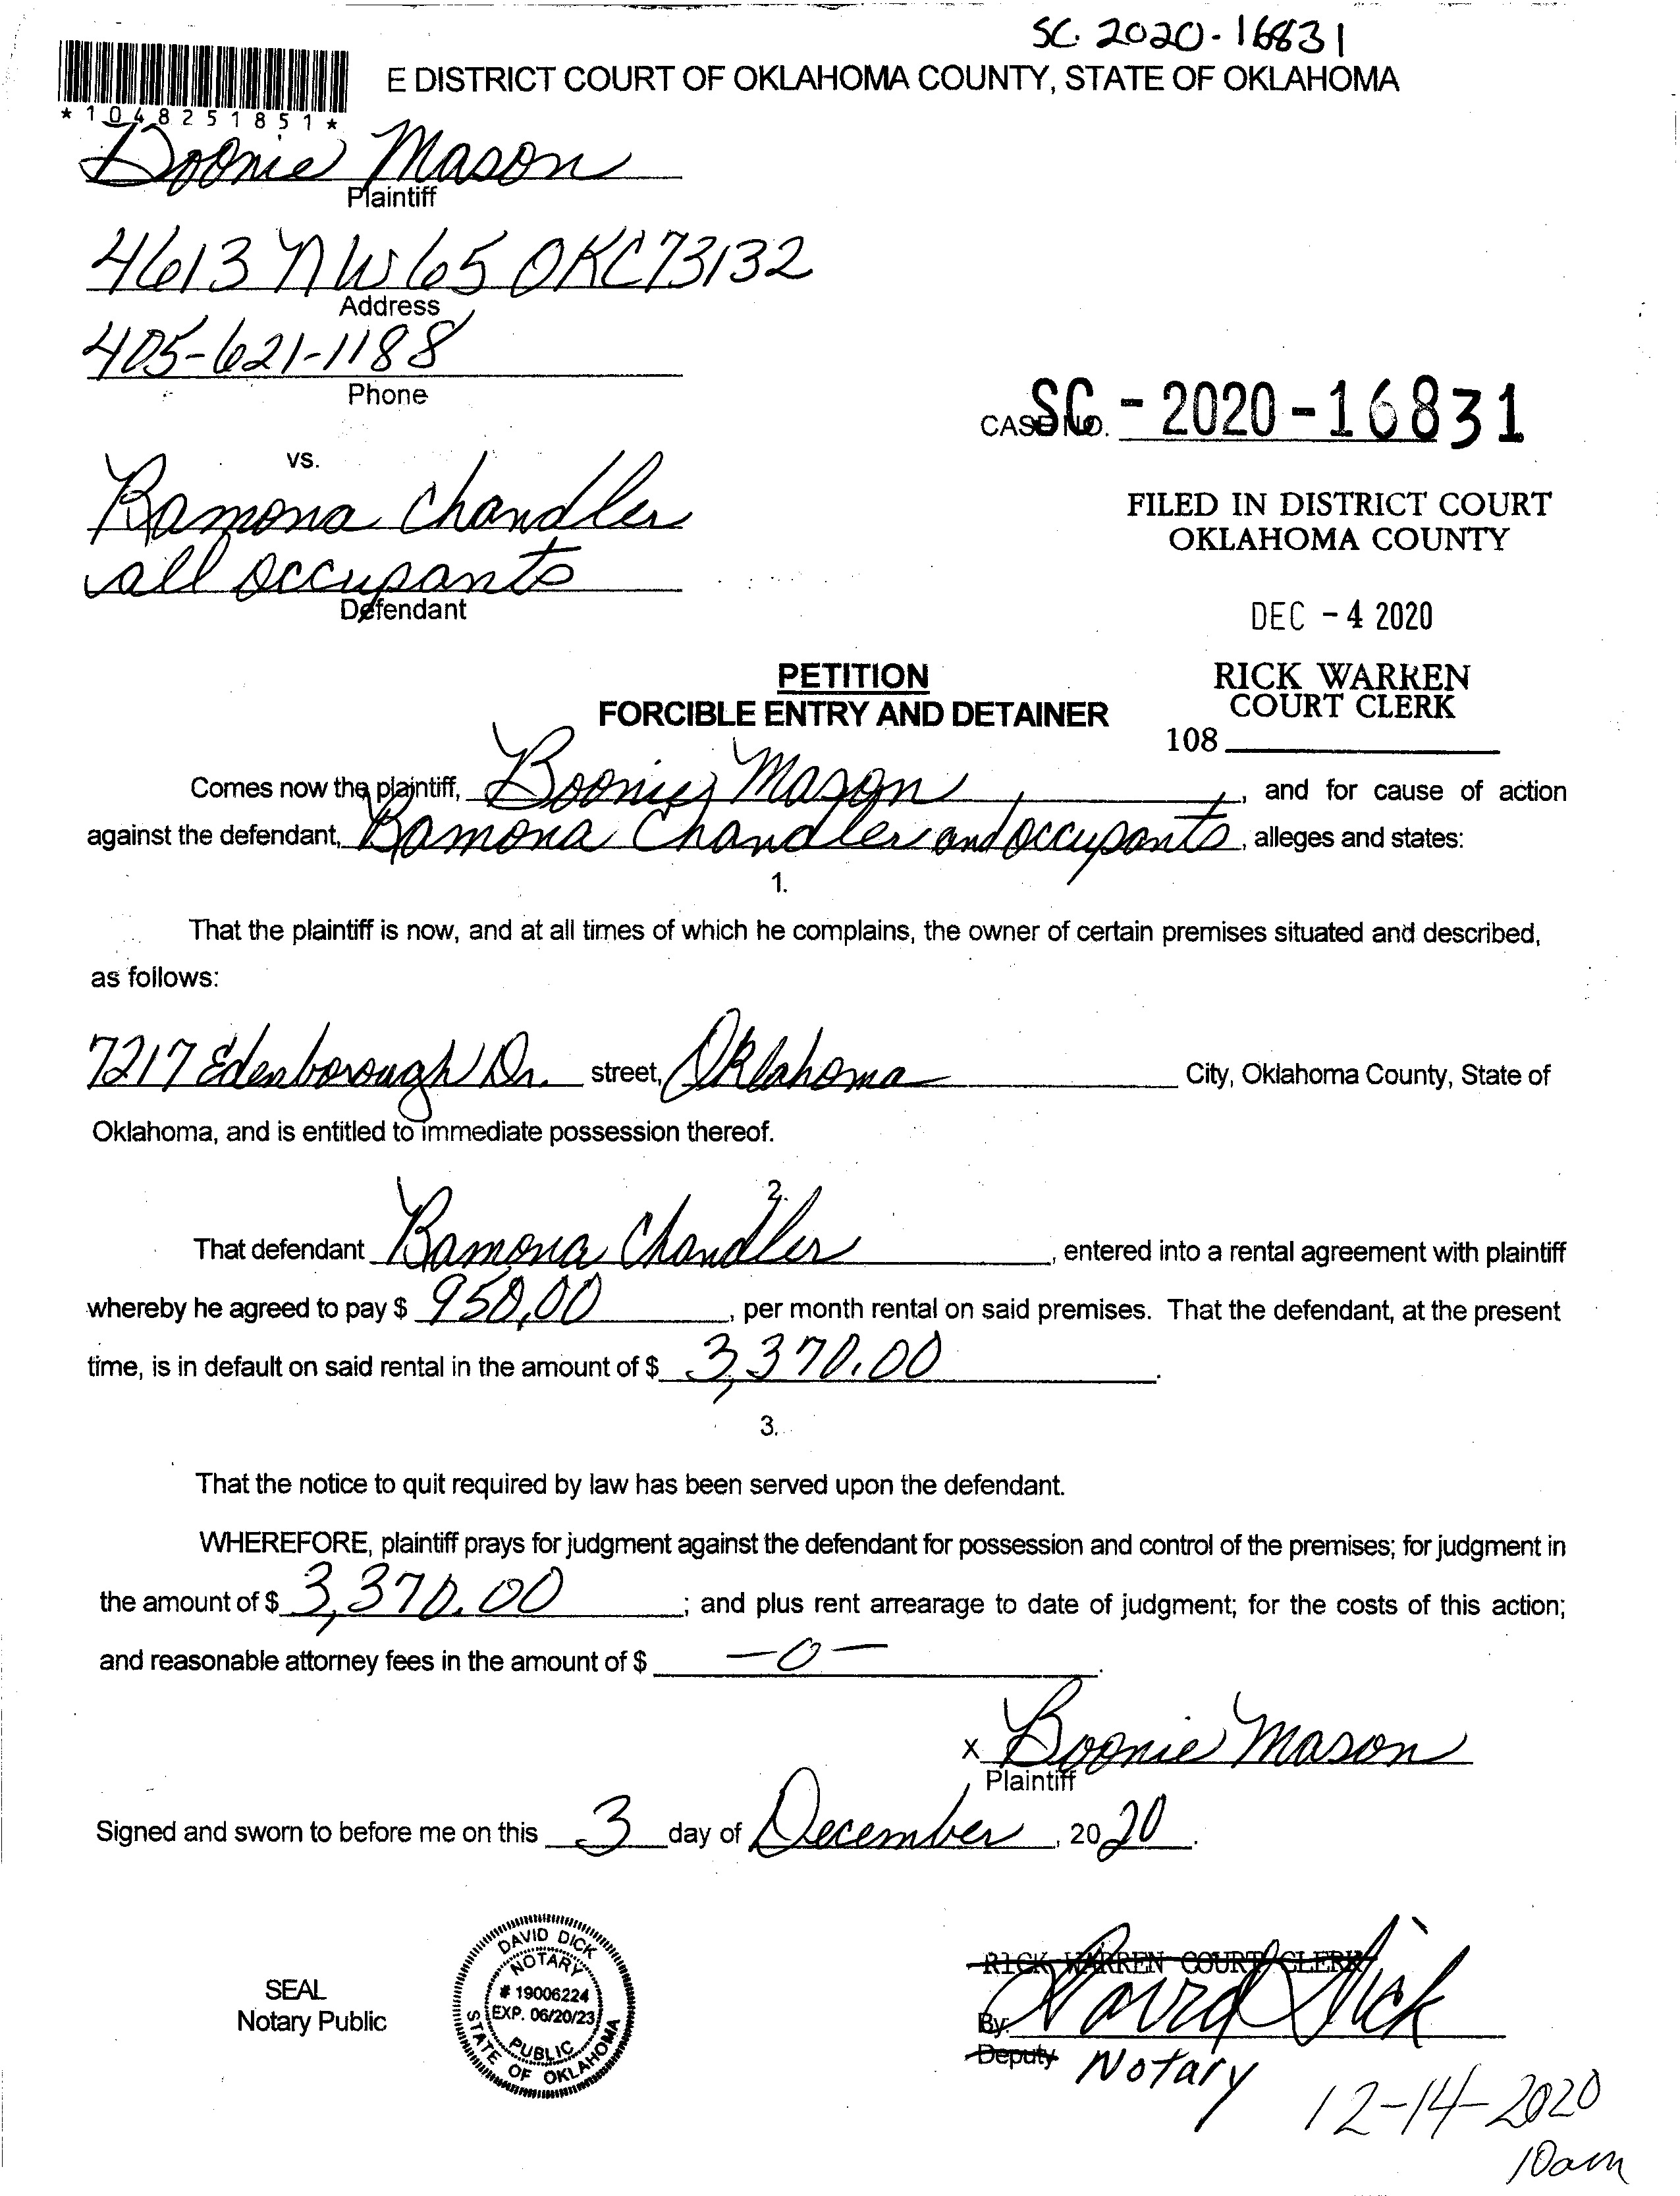 SC. 2020-16831
E DISTRICT COURT OF OKLAHOMA COUNTY, STATE OF OKLAHOMA
* 1 0 4 8 2 5 1 8 5 1 *
Boonie Mason
Plaintiff
4613 NW 65 OKC 73132
Address
405-621-1188
Phone
CASE NO. SC - 2020 - 16831
vs.
Ramona Chandler
all occupants
Defendant
FILED IN DISTRICT COURT
OKLAHOMA COUNTY
DEC - 4 2020
PETITION
FORCIBLE ENTRY AND DETAINER
RICK WARREN
COURT CLERK
108
Comes now the plaintiff, Boonie Mason, and for cause of action
against the defendant, Ramona Chandler and occupants, alleges and states:
1.
That the plaintiff is now, and at all times of which he complains, the owner of certain premises situated and described,
as follows:
7217 Edenborough Dr. street, Oklahoma City, Oklahoma County, State of
Oklahoma, and is entitled to immediate possession thereof.
2.
That defendant Ramona Chandler, entered into a rental agreement with plaintiff
whereby he agreed to pay $ 950.00, per month rental on said premises. That the defendant, at the present
time, is in default on said rental in the amount of $ 3,370.00.
3.
That the notice to quit required by law has been served upon the defendant.
WHEREFORE, plaintiff prays for judgment against the defendant for possession and control of the premises; for judgment in
the amount of $ 3,370.00; and plus rent arrearage to date of judgment; for the costs of this action;
and reasonable attorney fees in the amount of $ -0-.
X Boonie Mason
Plaintiff
Signed and sworn to before me on this 3 day of December, 2020.
SEAL
Notary Public
DAVID DICK
NOTARY
# 19006224
EXP. 06/20/23
PUBLIC
STATE OF OKLAHOMA
RICK WARREN COURT CLERK
By: David Dick
Deputy Notary
12-14-2020
10am